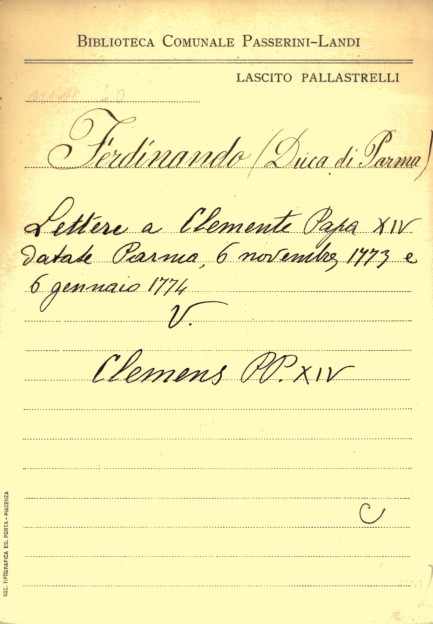 BIBLIOTECA COMUNALE PASSERINI-LANDI
LASCITO PALLASTRELLI
Ferdinando (Duca di Parma)
Lettere a Clemente Papa XIV
datate Parma, 6 novembre, 1773 e
6 gennaio 1774
V.
Clemens PP. XIV
C
SOC. TIPOGRAFICA ED. PORTA - PIACENZA